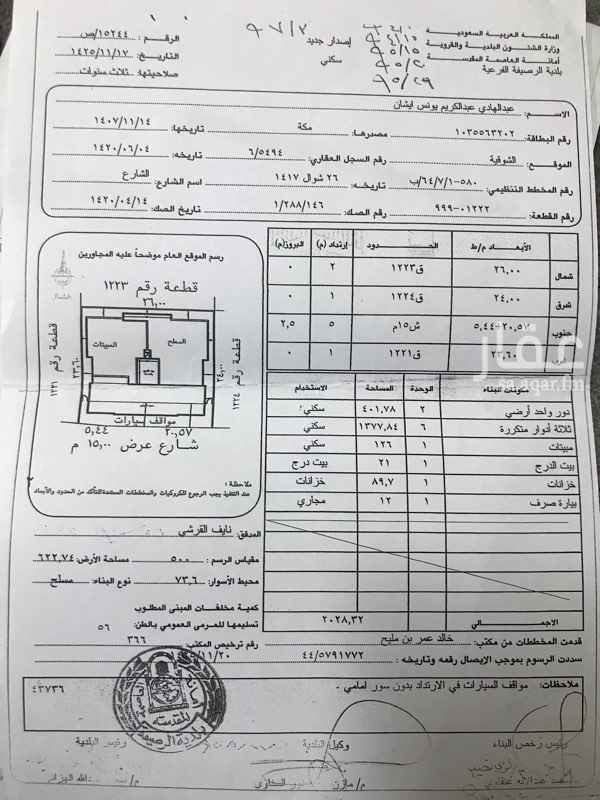 المملكة العربية السعودية
وزارة الشئون البلدية والقروية
أمانة العاصمة المقدسة
بلدية الرصيفة الفرعية
إصدار جديد
سكني
الرقم : ١٥٢٤٤/ص
التاريخ: ١٤٢٥/١١/١٧
صلاحيتها: ثلاث سنوات
الاســم: عبدالهادي عبدالكريم يونس ايشان
رقم البطاقة: ١٠٣٥٥٦٣٢٠٢ مصدرها: مكة تاريخها: ١٤٠٧/١١/١٤
الموقـــع: الشوقية رقم السجل العقاري: ٦/٥٤٩٤ تاريخه: ١٤٢٠/٠٦/٠٤
رقم المخطط التنظيمي: ٥٨٠-٦٤/٧/١/ب تاريخه: ٢٦ شوال ١٤١٧ اسم الشارع: الشارع
رقم القطعة: ٠١٢٢٢-٩٩٩ رقم الصك: ١/٢٨٨/١٤٦ تاريخ الصك: ١٤٢٠/٠٤/١٤
الأبعــاد م/ط الحـــدود إرتداد (م) البروز(م)
شمال ٢٦,٠٠ ق١٢٢٣ ٢ ٠
شرق ٢٤,٠٠ ق١٢٢٤ ١ ٠
جنوب ٢٠,٥٧+٥,٤٤ ش١٥م ٥ ٢,٥
٢٣,٦٠ ق١٢٢١ ١ ٠
مكونات البناء الوحدة المساحة الاستخدام
دور واحد أرضي ٢ ٤٠١,٧٨ سكني
ثلاثة أدوار متكررة ٦ ١٣٧٧,٨٤ سكني
مبيتات ١ ١٢٦ سكني
بيت الدرج ١ ٢١ بيت درج
خزانات ١ ٨٩,٧ خزانات
بيارة صرف ١ ١٢ مجاري
الاجمالي ٢٠٢٨,٣٢
رسم الموقع العام موضحاً عليه المجاورين
الشمال
قطعة رقم ١٢٢٣
٢٦,٠٠
قطعة رقم ١٢٢١
٢٣,٦٠
المبيتات
السطح
٢٤,٠٠
قطعة رقم ١٢٢٤
مواقف سيارات
٥,٤٤ ٢٠,٥٧
شارع عرض ١٥,٠٠ م
ملاحظة :
عند التنفيذ يجب الرجوع للكروكيات والمخططات المعتمدة للتأكد من الحدود والأبعاد
المدقق: نايف القرشي
مقياس الرسم : ٥٠٠ مساحة الأرض: ٦٢٢,٧٤
محيط الأسوار: ٧٣,٦ نوع البناء: مسلح
كمية مخلفات المبنى المطلوب
تسليمها للمرمى العمومي بالطن: ٥٦
قدمت المخططات من مكتب: خالد عمر بن مليح رقم ترخيص المكتب: ٣٦٦
سددت الرسوم بموجب الايصال رقمه وتاريخه : ٤٤/٥٧٩١٧٧٢
ملاحظات: مواقف السيارات في الارتداد بدون سور امامي .
٤٣٧٣٦
رئيس رخص البناء وكيل البلدية رئيس البلدية
عقار
sa.aqar.fm